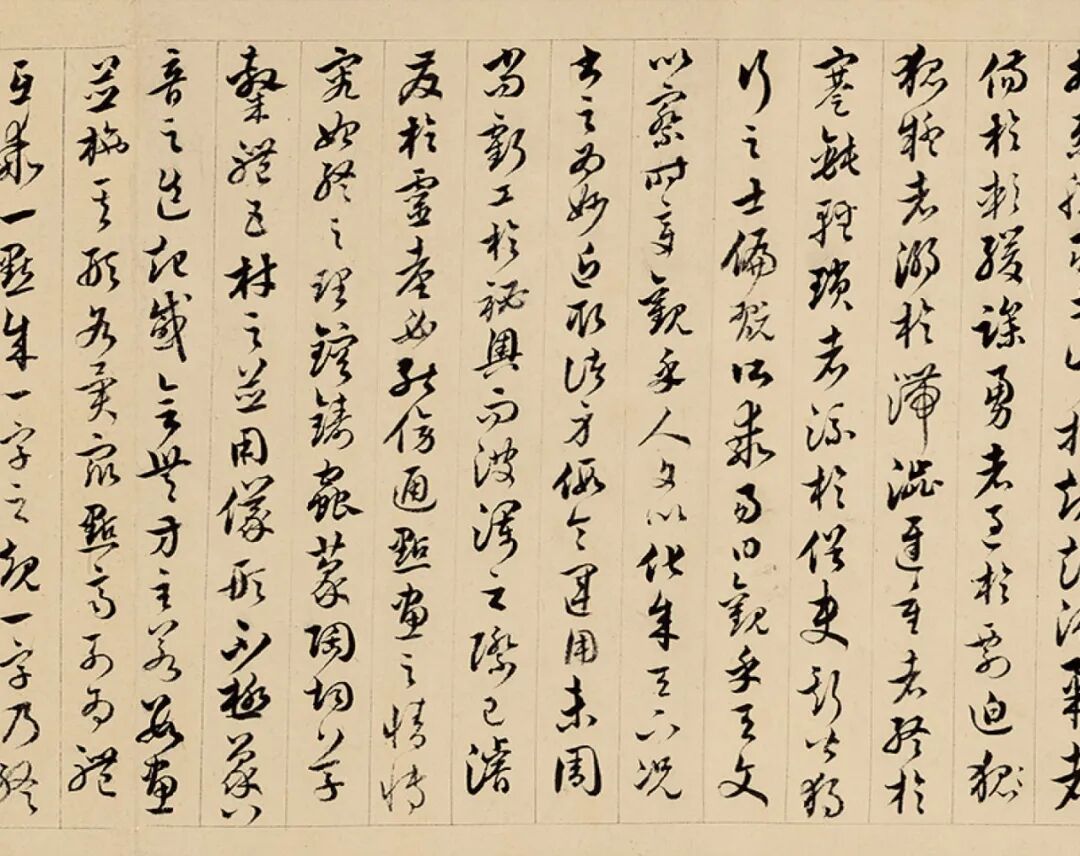 規矩溫柔者
傷於軟緩躁勇者過於剽迫狐
狐疑者溺於滯澀遲重者終於
蹇鈍輕瑣者染於俗吏斯皆獨
行之士偏翫所乖易曰觀乎天文
以察時變觀乎人文以化成天下況
書之為妙近取諸身假令運用未周
尚虧工於祕奧而波瀾之際已濬
發於靈臺必能傍通點畫之情博
究始終之理鎔鑄蟲篆陶均草
隸體五材之並用儀形不極象八
音之迭起感會無方至若數畫
並施其形各異眾點齊列為體
互乖一點成一字之規一字乃終